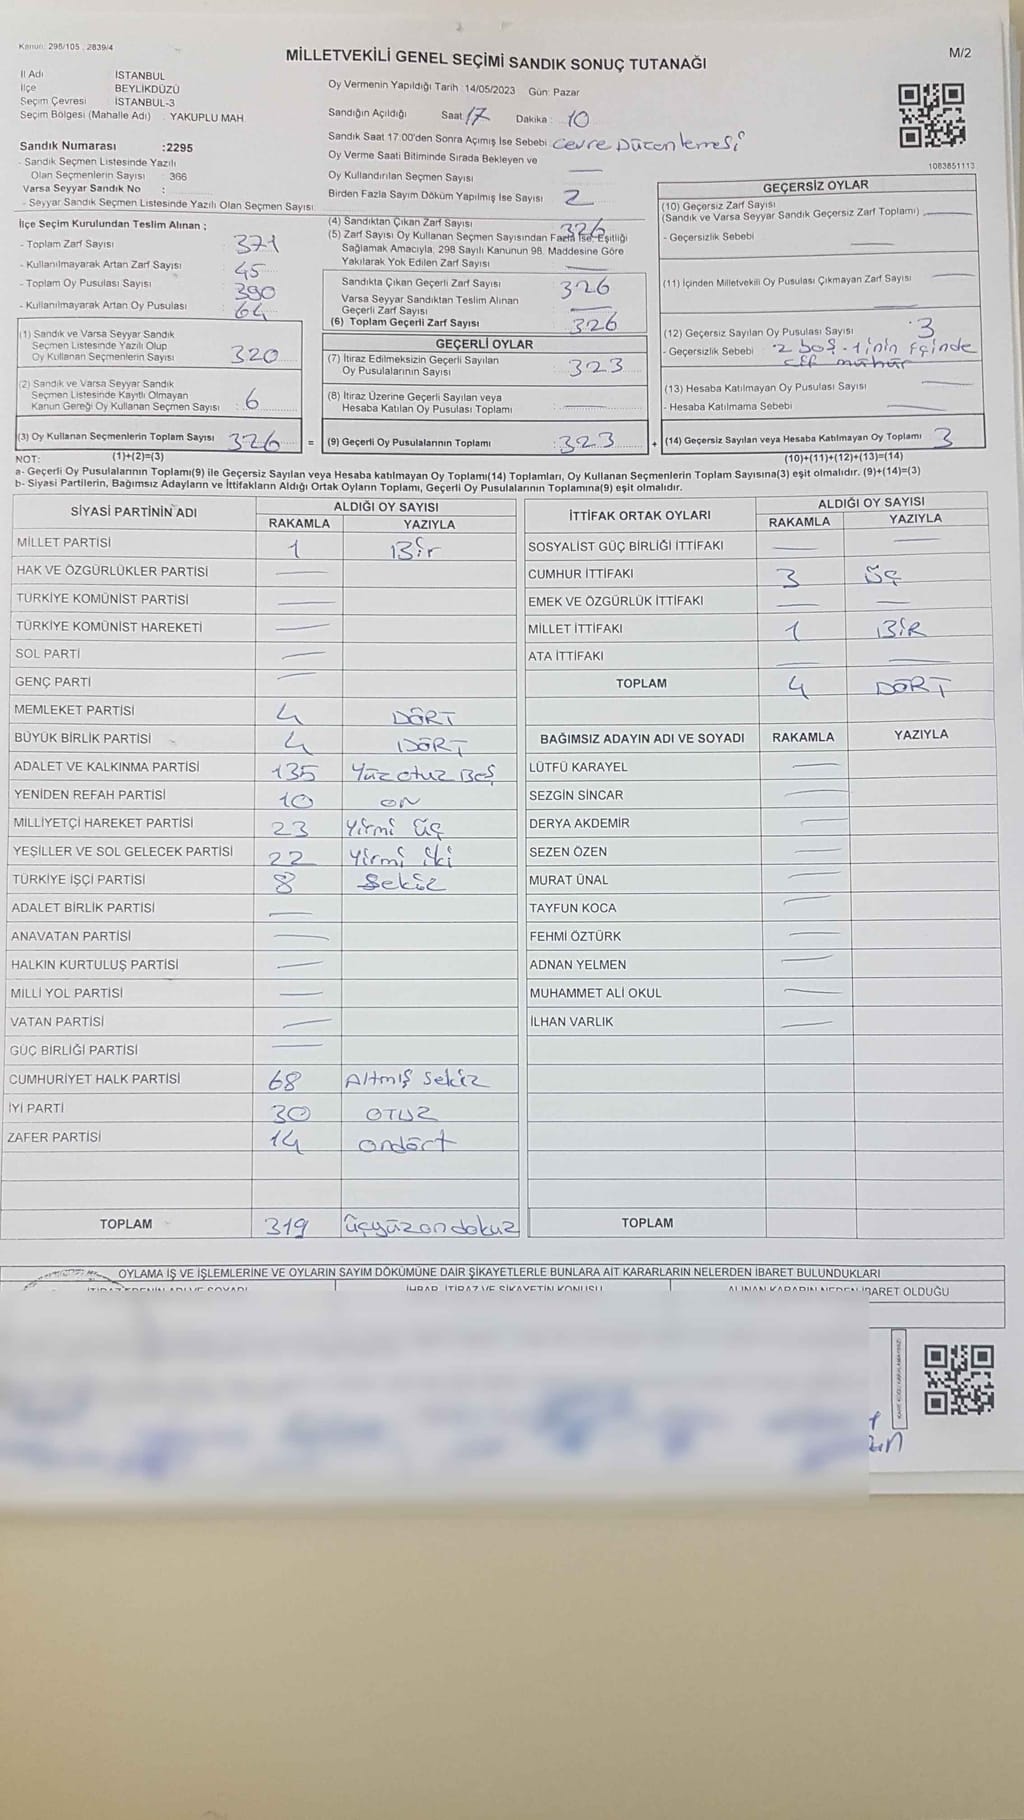 Kanun: 298/105 , 2839/4
MİLLETVEKİLİ GENEL SEÇİMİ SANDIK SONUÇ TUTANAĞI
M/2
İl Adı İSTANBUL
İlçe BEYLİKDÜZÜ
Seçim Çevresi İSTANBUL-3
Seçim Bölgesi (Mahalle Adı) : YAKUPLU MAH.
Sandık Numarası :2295
- Sandık Seçmen Listesinde Yazılı
Olan Seçmenlerin Sayısı : 366
Varsa Seyyar Sandık No :
- Seyyar Sandık Seçmen Listesinde Yazılı Olan Seçmen Sayısı:
İlçe Seçim Kurulundan Teslim Alınan ;
- Toplam Zarf Sayısı 371
- Kullanılmayarak Artan Zarf Sayısı 45
- Toplam Oy Pusulası Sayısı 390
- Kullanılmayarak Artan Oy Pusulası 64
(1) Sandık ve Varsa Seyyar Sandık
Seçmen Listesinde Yazılı Olup
Oy Kullanan Seçmenlerin Sayısı 320
(2) Sandık ve Varsa Seyyar Sandık
Seçmen Listesinde Kayıtlı Olmayan
Kanun Gereği Oy Kullanan Seçmen Sayısı : 6
(3) Oy Kullanan Seçmenlerin Toplam Sayısı 326 =
Oy Vermenin Yapıldığı Tarih :14/05/2023 Gün: Pazar
Sandığın Açıldığı Saat: 17 Dakika : 10
Sandık Saat 17:00'den Sonra Açımış İse Sebebi Çevre Düzenlemesi
Oy Verme Saati Bitiminde Sırada Bekleyen ve
Oy Kullandırılan Seçmen Sayısı —
Birden Fazla Sayım Döküm Yapılmış İse Sayısı 2
(4) Sandıktan Çıkan Zarf Sayısı 326
(5) Zarf Sayısı Oy Kullanan Seçmen Sayısından Fazla İse Eşitliği
Sağlamak Amacıyla, 298 Sayılı Kanunun 98. Maddesine Göre
Yakılarak Yok Edilen Zarf Sayısı —
Sandıkta Çıkan Geçerli Zarf Sayısı 326
Varsa Seyyar Sandıktan Teslim Alınan
Geçerli Zarf Sayısı —
(6) Toplam Geçerli Zarf Sayısı 326
GEÇERLİ OYLAR
(7) İtiraz Edilmeksizin Geçerli Sayılan
Oy Pusulalarının Sayısı : 323
(8) İtiraz Üzerine Geçerli Sayılan veya
Hesaba Katılan Oy Pusulası Toplamı : —
(9) Geçerli Oy Pusulalarının Toplamı : 323 +
1083651113
GEÇERSİZ OYLAR
(10) Geçersiz Zarf Sayısı
(Sandık ve Varsa Seyyar Sandık Geçersiz Zarf Toplamı) —
- Geçersizlik Sebebi —
(11) İçinden Milletvekili Oy Pusulası Çıkmayan Zarf Sayısı —
(12) Geçersiz Sayılan Oy Pusulası Sayısı 3
- Geçersizlik Sebebi 2 boş - 1inin içinde
mühür
(13) Hesaba Katılmayan Oy Pusulası Sayısı —
- Hesaba Katılmama Sebebi —
(14) Geçersiz Sayılan veya Hesaba Katılmayan Oy Toplamı 3
NOT: (1)+(2)=(3) (10)+(11)+(12)+(13)=(14)
a- Geçerli Oy Pusulalarının Toplamı(9) ile Geçersiz Sayılan veya Hesaba katılmayan Oy Toplamı(14) Toplamları, Oy Kullanan Seçmenlerin Toplam Sayısına(3) eşit olmalıdır. (9)+(14)=(3)
b- Siyasi Partilerin, Bağımsız Adayların ve İttifakların Aldığı Ortak Oyların Toplamı, Geçerli Oy Pusulalarının Toplamına(9) eşit olmalıdır.
SİYASİ PARTİNİN ADI ALDIĞI OY SAYISI
RAKAMLA YAZIYLA
MİLLET PARTİSİ 1 Bir
HAK VE ÖZGÜRLÜKLER PARTİSİ —
TÜRKİYE KOMÜNİST PARTİSİ —
TÜRKİYE KOMÜNİST HAREKETİ —
SOL PARTİ —
GENÇ PARTİ —
MEMLEKET PARTİSİ 4 DÖRT
BÜYÜK BİRLİK PARTİSİ 4 DÖRT
ADALET VE KALKINMA PARTİSİ 135 Yüz otuz Beş
YENİDEN REFAH PARTİSİ 10 ON
MİLLİYETÇİ HAREKET PARTİSİ 23 Yirmi üç
YEŞİLLER VE SOL GELECEK PARTİSİ 22 Yirmi iki
TÜRKİYE İŞÇİ PARTİSİ 8 Sekiz
ADALET BİRLİK PARTİSİ —
ANAVATAN PARTİSİ —
HALKIN KURTULUŞ PARTİSİ —
MİLLİ YOL PARTİSİ —
VATAN PARTİSİ —
GÜÇ BİRLİĞİ PARTİSİ —
CUMHURİYET HALK PARTİSİ 68 Altmış Sekiz
İYİ PARTİ 30 OTUZ
ZAFER PARTİSİ 14 ondört
TOPLAM 319 üçyüzondokuz
İTTİFAK ORTAK OYLARI ALDIĞI OY SAYISI
RAKAMLA YAZIYLA
SOSYALİST GÜÇ BİRLİĞİ İTTİFAKI — —
CUMHUR İTTİFAKI 3 üç
EMEK VE ÖZGÜRLÜK İTTİFAKI — —
MİLLET İTTİFAKI 1 BİR
ATA İTTİFAKI — —
TOPLAM 4 DÖRT
BAĞIMSIZ ADAYIN ADI VE SOYADI RAKAMLA YAZIYLA
LÜTFÜ KARAYEL —
SEZGİN SİNCAR —
DERYA AKDEMİR —
SEZEN ÖZEN —
MURAT ÜNAL —
TAYFUN KOCA —
FEHMİ ÖZTÜRK —
ADNAN YELMEN —
MUHAMMET ALİ OKUL —
İLHAN VARLIK —
TOPLAM
OYLAMA İŞ VE İŞLEMLERİNE VE OYLARIN SAYIM DÖKÜMÜNE DAİR ŞİKAYETLERLE BUNLARA AİT KARARLARIN NELERDEN İBARET BULUNDUKLARI
İTİRAZ EDENİN ADI VE SOYADI İHBAR, İTİRAZ VE ŞİKAYETİN KONUSU ALINAN KARARIN NEDEN İBARET OLDUĞU